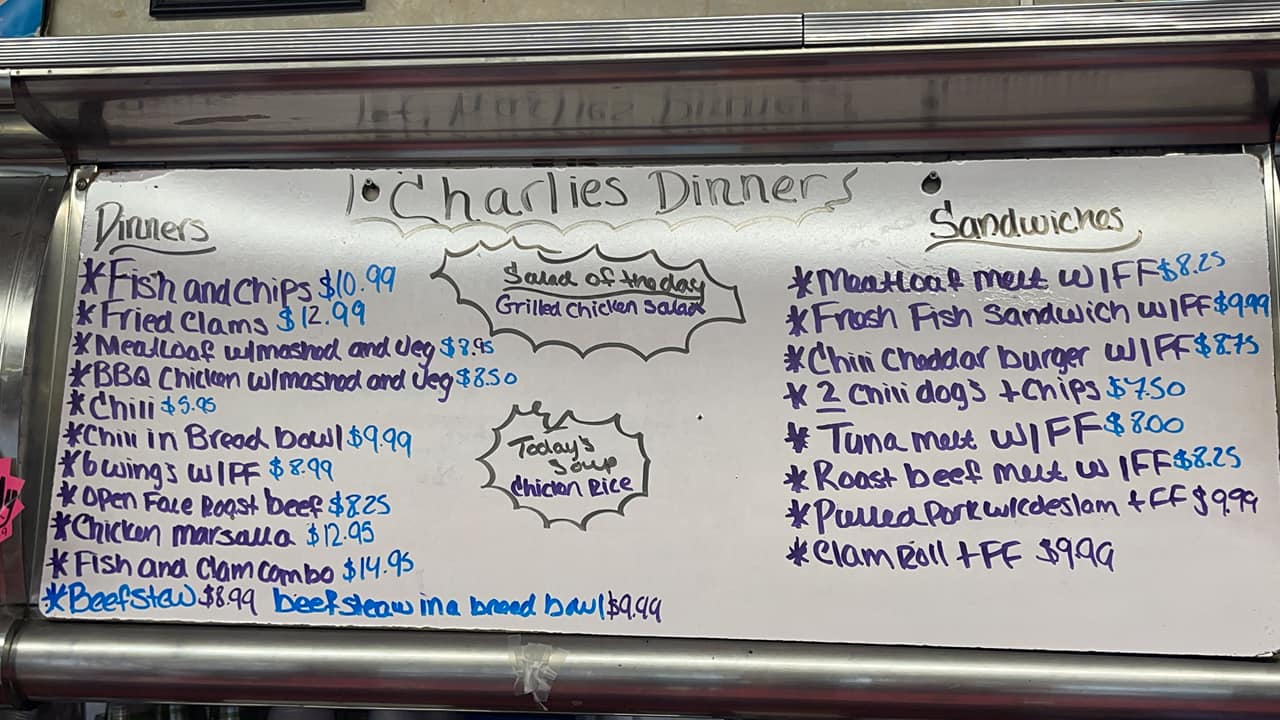 Charlies Dinners
Dinners
*Fish and Chips $10.99
*Fried Clams $12.99
*Meatloaf w/mashod and Veg $8.95
*BBQ Chicken w/mashod and Veg $8.50
*Chili $5.95
*Chili in Bread bowl $9.99
*6 wing's W/FF $8.99
*Open Face Roast beef $8.25
*Chicken marsalla $12.95
*Fish and Clam Combo $14.95
*Beef Stew $8.99 beef steaw in a bread bowl $9.99
Salad of the day
Grilled Chicken Salad
Today's
Soup
Chicken Rice
Sandwiches
*Meatloaf melt W/FF $8.25
*Fresh Fish Sandwich W/FF $9.99
*Chili Cheddar burger W/FF $8.75
*2 Chili dogs +Chips $7.50
*Tuna melt W/FF $8.00
*Roast beef melt W/FF $8.25
*Pulled Pork w/coleslam +FF $9.99
*Clam Roll +FF $9.99